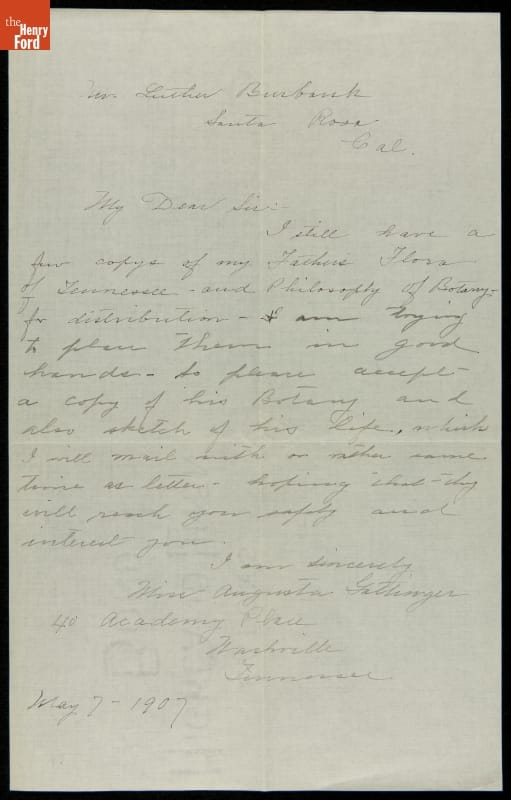 the
Henry
Ford
Mr. Luther Burbank
Santa Rosa
Cal.
My Dear Sir:-
I still have a
few copys of my Fathers Flora
of Tennessee - and Philosophy of Botany-
for distribution - & am trying
to place them in good
hands - so please accept
a copy of his Botany and
also sketch of his life, which
I will mail with or rather same
time as letter - hoping that they
will reach you safely and
interest you.
I am sincerely
Miss Augusta Gattinger
40 Academy Place
Nashville
Tennessee
May 7 - 1907